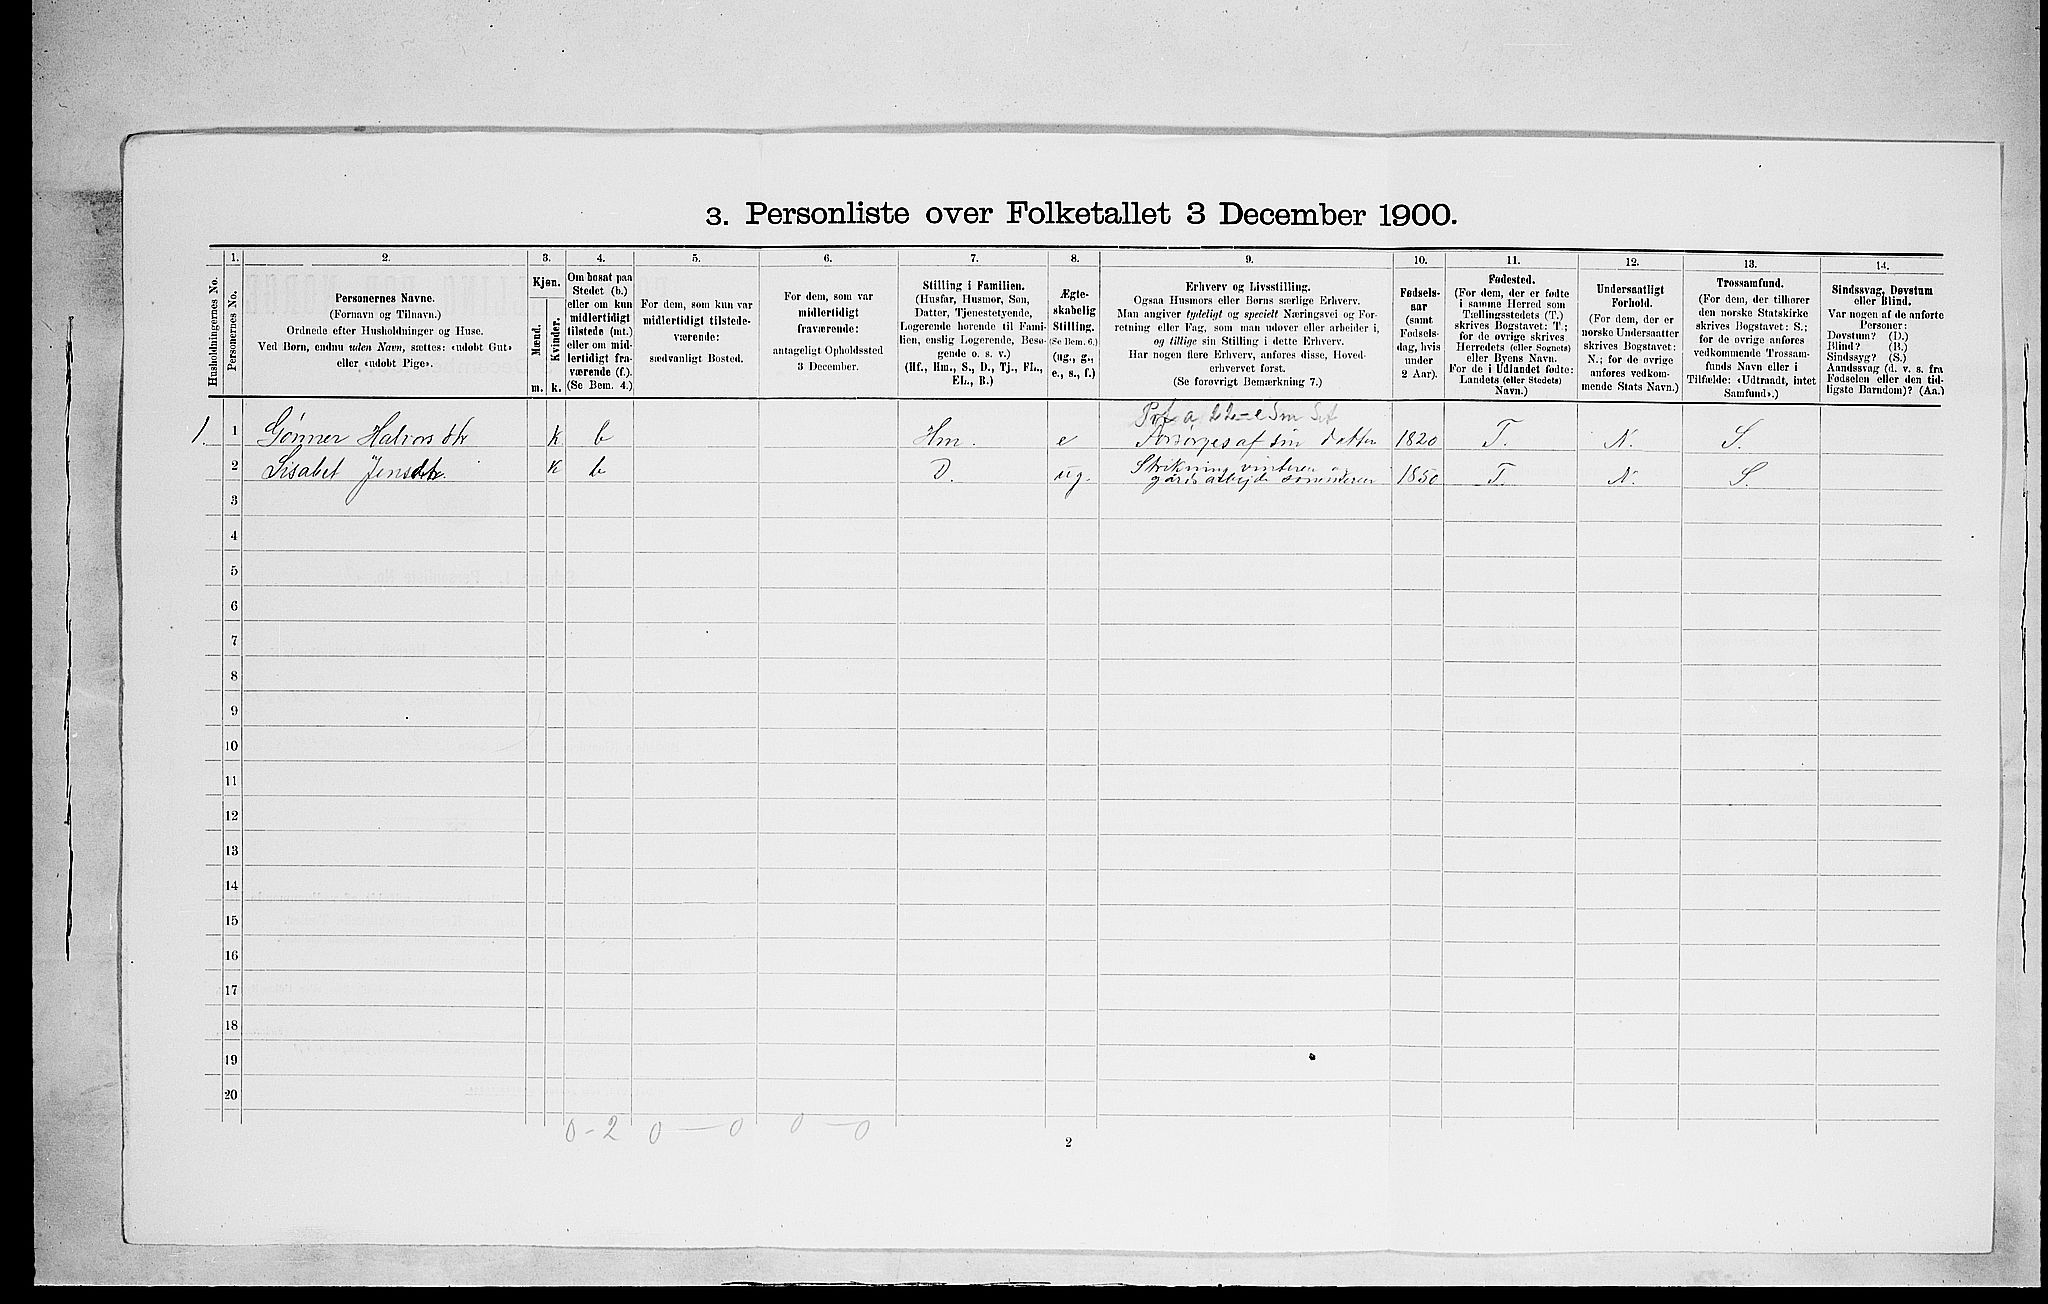 3. Personliste over Folketallet 3 December 1900.
Husholdningernes No.
1.
Personernes No.
2.
Personernes Navne.
(Fornavn og Tilnavn.)
Ordnede efter Husholdninger og Huse.
Ved Børn, endnu uden Navn, sættes: «udøbt Gut»
eller «udøbt Pige».
3.
Kjøn.
Mænd.
Kvinder.
m. k.
4.
Om bosat paa
Stedet (b.)
eller om kun
midlertidigt
tilstede (mt.)
eller om mid-
lertidigt fra-
værende (f.).
(Se Bem. 4.)
5.
For dem, som kun var
midlertidigt tilstede-
værende:
sædvanligt Bosted.
6.
For dem, som var
midlertidigt
fraværende:
antageligt Opholdssted
3 December.
7.
Stilling i Familien.
(Husfar, Husmor, Søn,
Datter, Tjenestetyende,
Logerende hørende til Fami-
lien, enslig Logerende, Besø-
gende o. s. v.)
(Hf., Hm., S., D., Tj., FL.,
EL., B.)
8.
Ægte-
skabelig
Stilling.
(Se Bem. 6.)
(ug., g.,
e., s., f.)
9.
Erhverv og Livsstilling.
Ogsaa Husmors eller Børns særlige Erhverv.
Man angiver tydeligt og specielt Næringsvei og For-
retning eller Fag, som man udøver eller arbeider i,
og tillige sin Stilling i dette Erhverv.
Har nogen flere Erhverv, anføres disse, Hoved-
erhvervet først.
(Se forøvrigt Bemærkning 7.)
10.
Fødsels-
aar
(samt
Fødsels-
dag, hvis
under
2 Aar).
11.
Fødested.
(For dem, der er fødte
i samme Herred som
Tællingsstedets (T.)
skrives Bogstavet: T;
for de øvrige skrives
Herredets (eller Sognets)
eller Byens Navn.
For de i Udlandet fødte:
Landets (eller Stedets)
Navn.)
12.
Undersaatligt
Forhold.
(For dem, der er
norske Undersaatter
skrives Bogstavet:
N.; for de øvrige
anføres vedkom-
mende Stats Navn.)
13.
Trossamfund.
(For dem, der tilhører
den norske Statskirke
skrives Bogstavet: S.;
for de øvrige anføres
vedkommende Trossam-
funds Navn eller i
Tilfælde: «Udtraadt, intet
Samfund».)
14.
Sindssvag, Døvstum
eller Blind.
Var nogen af de anførte
Personer:
Døvstum? (D.)
Blind? (B.)
Sindssyg? (S.)
Aandssvag (d. v. s. fra
Fødselen eller den tid-
ligste Barndom)? (Aa.)
1. 1 Gønner Halvorsdtr K b Hm. e Forsørges af sin datter 1820 T. N. S.
2 Lisabet Jensdtr. K b D. ug. Strikning vinteren og
gårdsarbejde sommeren 1850 T. N. S.
3
4
5
6
7
8
9
10
11
12
13
14
15
16
17
18
19
20
0 - 2 0 — 0 0 — 0
2